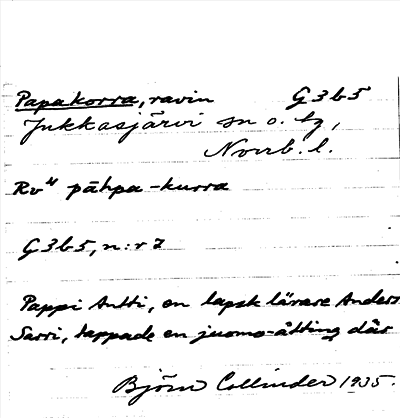 Papakorra, ravin G 3 b 5
Jukkasjärvi sn o. tg,
Norrb. l.
Rv4 pāhpa-kurra
G 3 b 5, n:r 7
Pappi Antti, en lapsk lärare Anders
Sarri, tappade en juomo-åtting där
Björn Collinder 1935.